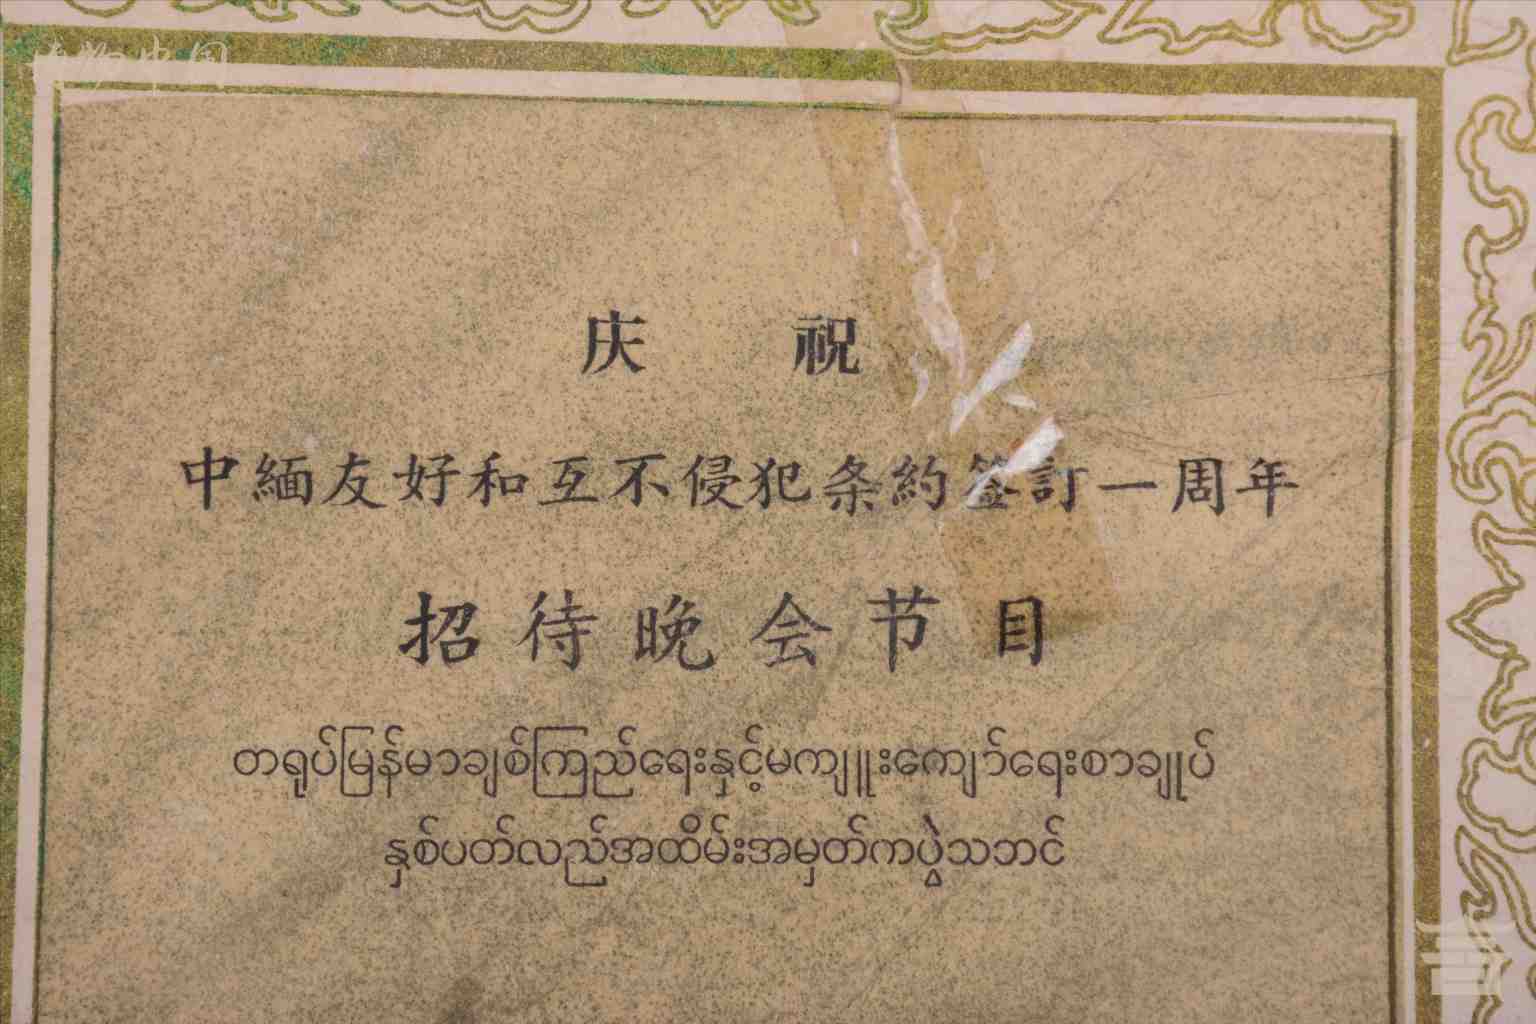 庆祝
中緬友好和互不侵犯条約签訂一周年
招待晚会节目
တရုပ်မြန်မာချစ်ကြည်ရေးနှင့်မကျူးကျော်ရေးစာချုပ်
နှစ်ပတ်လည်အထိမ်းအမှတ်ကပွဲသဘင်